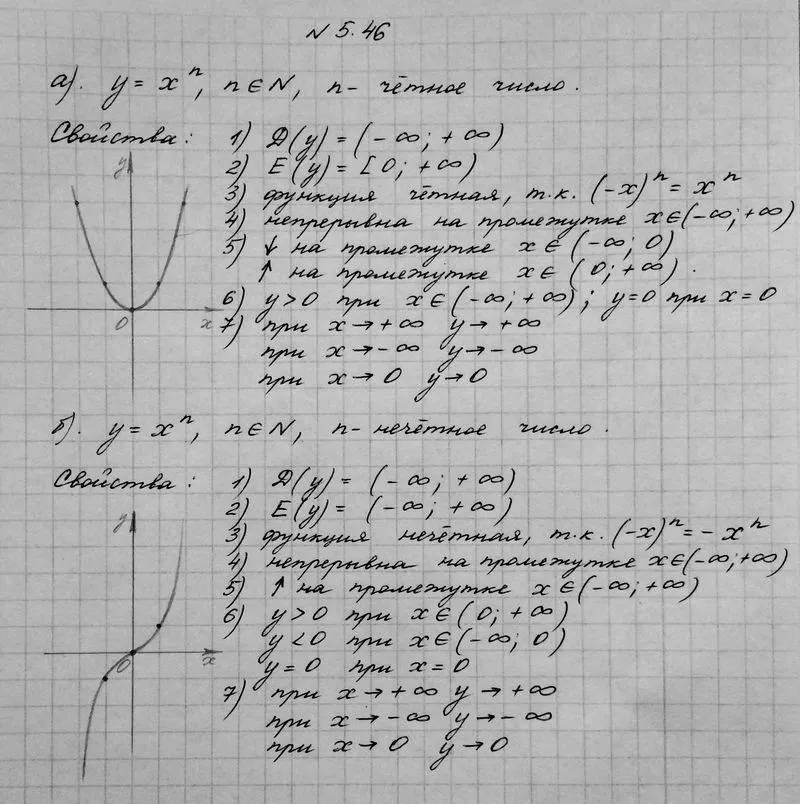 N 5.46
а). y = xⁿ, n ∈ N, n - чётное число.
Свойства: 1) D(y) = (-∞; +∞)
2) E(y) = [0; +∞)
3) функция чётная, т.к. (-x)ⁿ = xⁿ
4) непрерывна на промежутке x∈(-∞; +∞)
5) ↓ на промежутке x∈(-∞; 0)
↑ на промежутке x∈(0; +∞).
6) y>0 при x∈(-∞; +∞); y=0 при x=0
7) при x→+∞ y→+∞
при x→-∞ y→-∞
при x→0 y→0
y
0
x
б). y = xⁿ, n ∈ N, n - нечётное число.
Свойства: 1) D(y) = (-∞; +∞)
2) E(y) = (-∞; +∞)
3) функция нечётная, т.к. (-x)ⁿ = -xⁿ
4) непрерывна на промежутке x∈(-∞; +∞)
5) ↑ на промежутке x∈(-∞; +∞)
6) y>0 при x∈(0; +∞)
y<0 при x∈(-∞; 0)
y=0 при x=0
7) при x→+∞ y→+∞
при x→-∞ y→-∞
при x→0 y→0
y
0
x